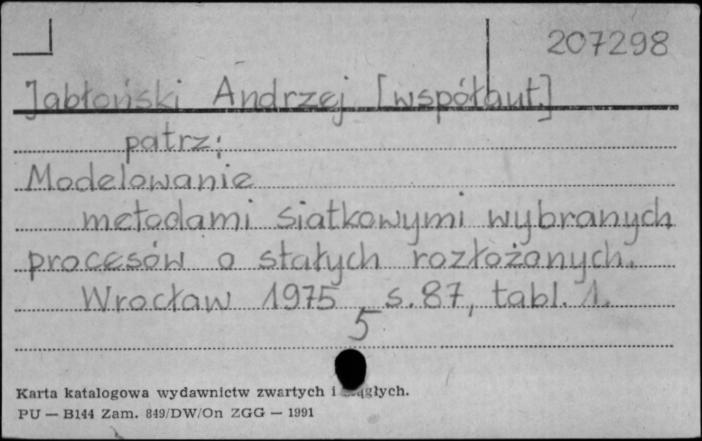 207298
Jabłoński Andrzej [współaut.]
patrz:
Modelowanie
metodami siatkowymi wybranych
procesów o stałych rozłożonych.
Wrocław 1975 s. 87, tabl. 1.
5
Karta katalogowa wydawnictw zwartych i ciągłych.
PU — B144 Zam. 849/DW/On ZGG — 1991